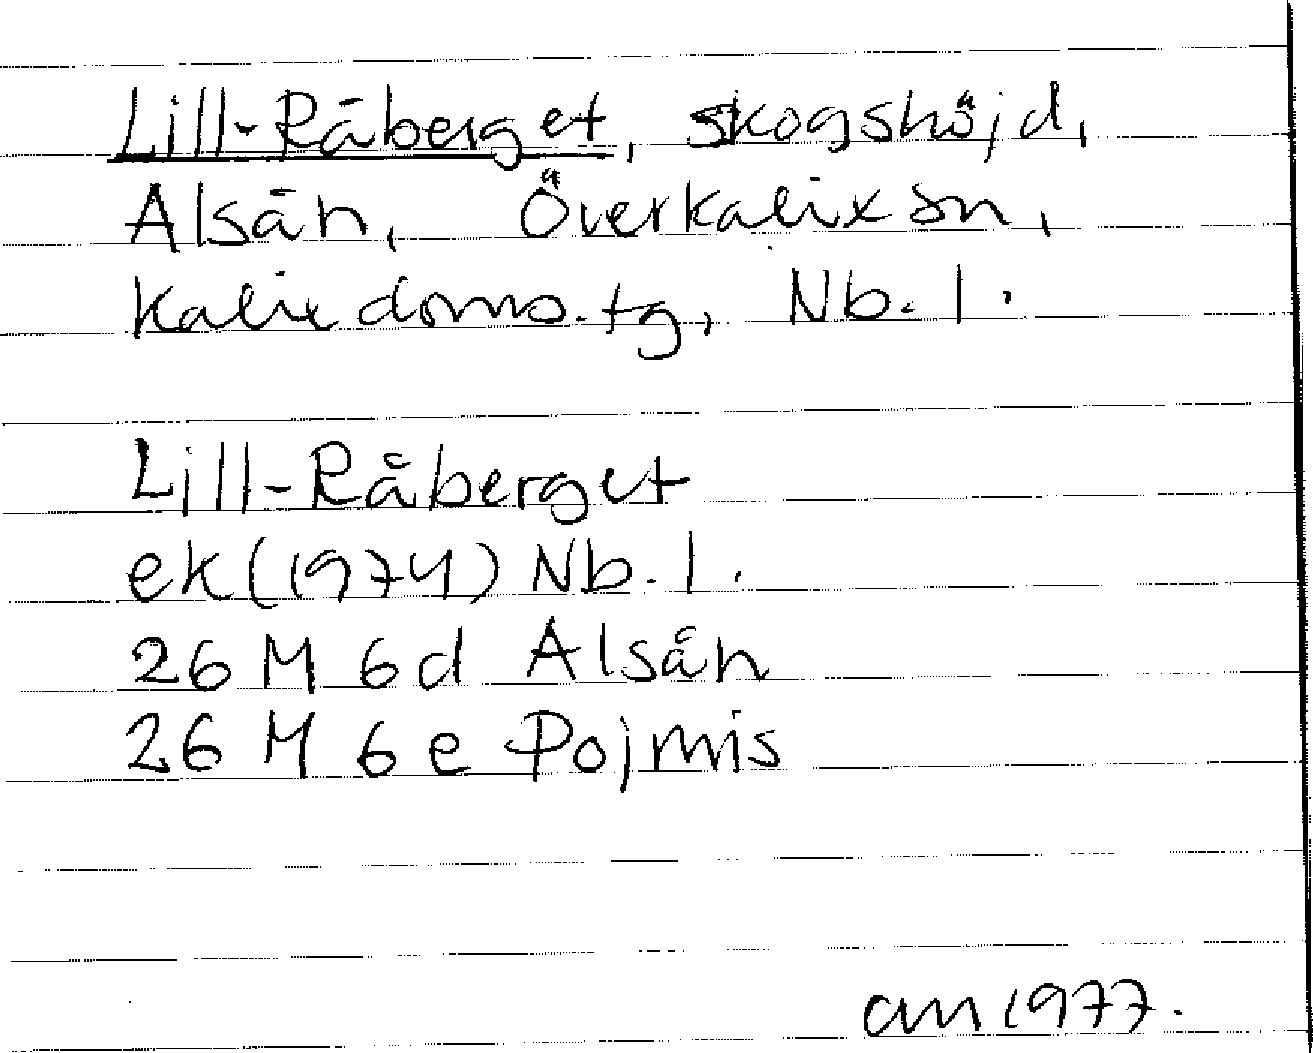 Lill-Råberget, skogshöjd,
Alsån, Överkalix sn,
Kalix doms.tg, Nb. l.
Lill-Råberget
ek (1974) Nb. l.
26 M 6d Alsån
26 M 6e Pojmis
am 1977.